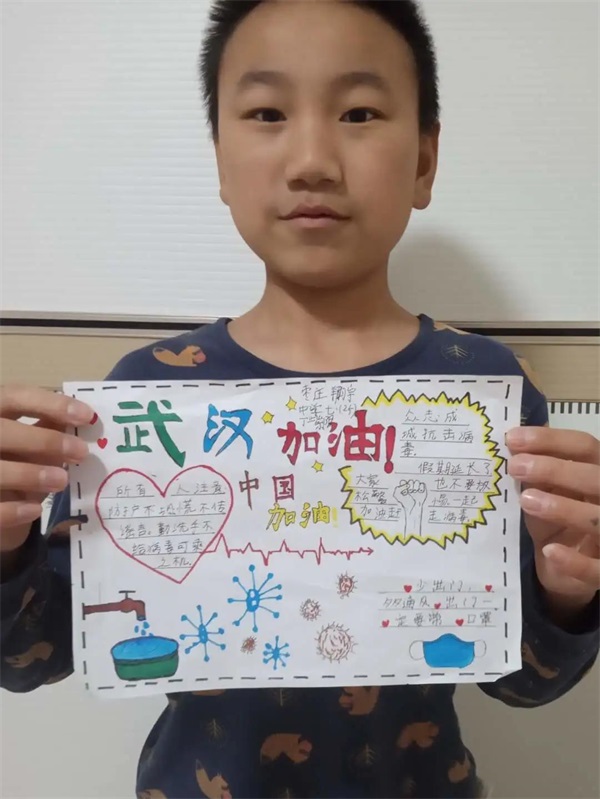 武汉加油!
中国
加油!
众志成
城抗击病
毒
假期延长了
大家 也不要放
松警惕一起
加油赶走病毒
所有人注意
防护不恐慌不传
谣言,勤洗手不
给病毒可乘
之机
少出门,
多通风出门一
定要带口罩